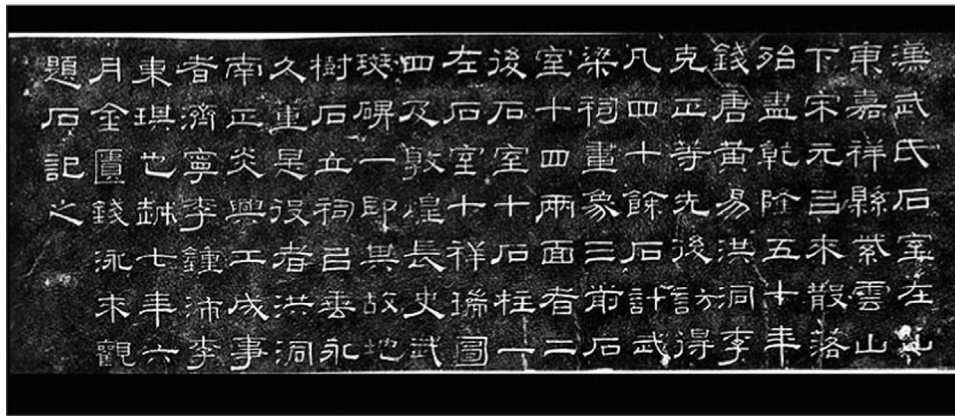 漢武氏石室在山
東嘉祥縣紫雲山
下宋元㠯來散落
殆盡乾隆五十年
錢唐黃易洪洞李
克正等先後訪得
凡四十餘石計武
梁祠畫象三前石
室十四兩面者二
後石室十石柱一
左石室十祥瑞圖
四及敦煌長史武
斑碑一即其故地
樹石立祠㠯垂永
久董是役者洪洞
南正炎興工成事
者濟寧李鍾沛李
東琪也越七年六
月金匱錢泳來觀
題石記之